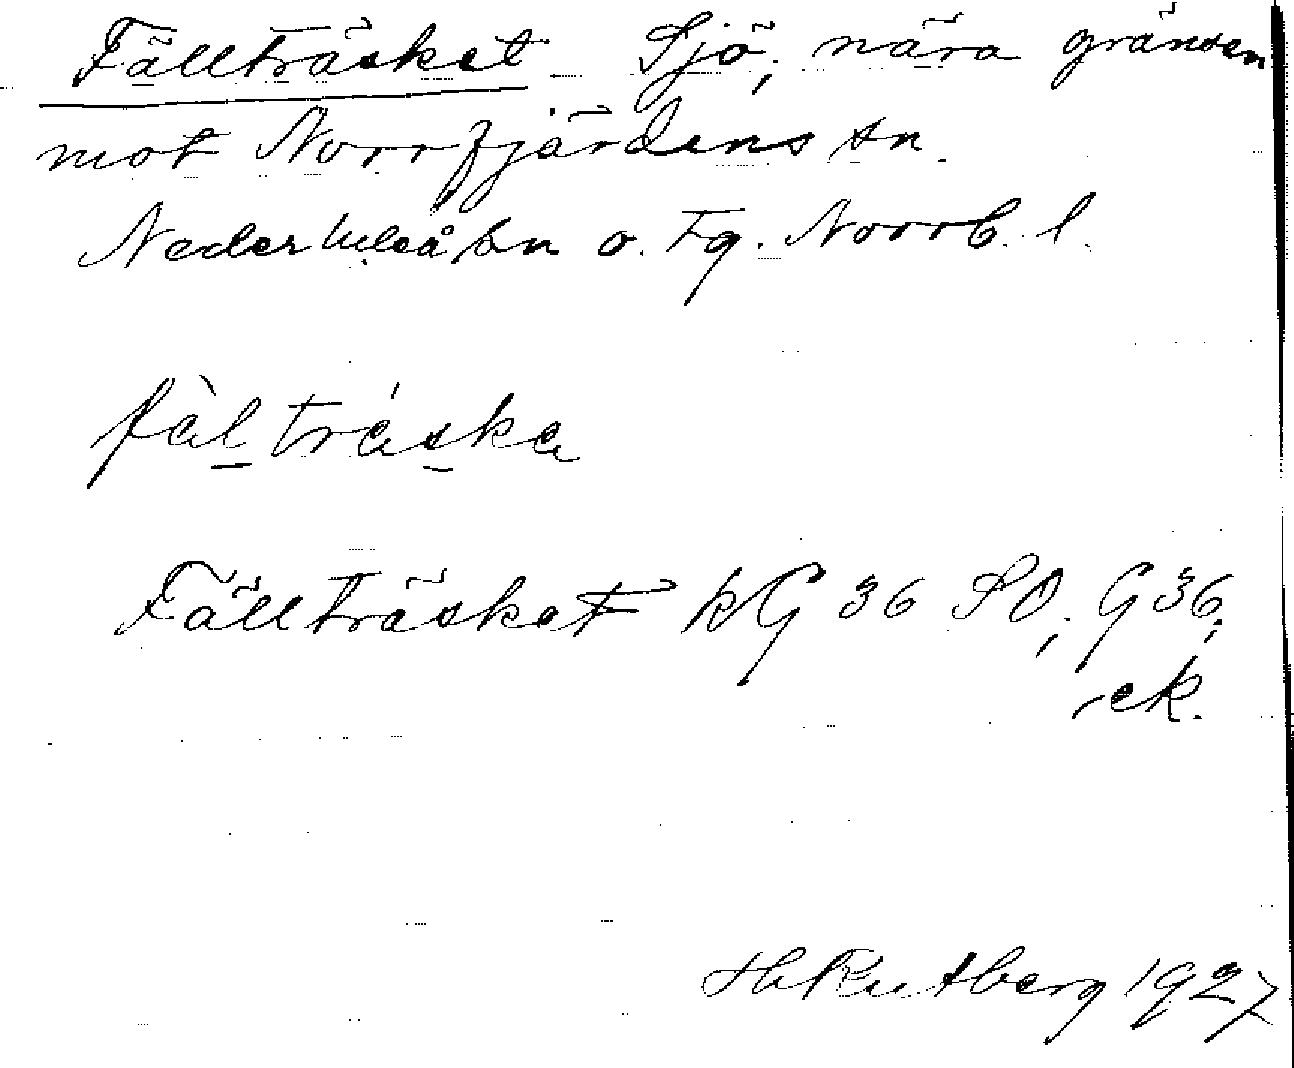 Fällträsket Sjö, nära gränsen
mot Norrfjärdens sn.
Nederluleå sn o. tg. Norrb. l.
fàl tráska
Fällträsket kG 36 SO, G 36,
rek.
H Rutberg 1927